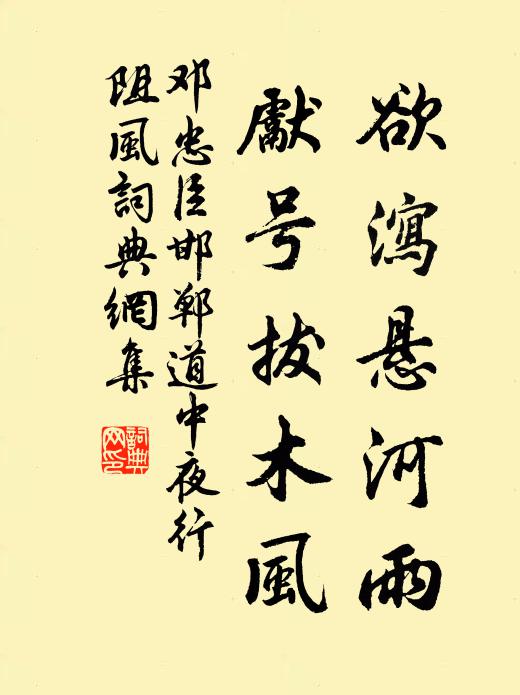 欲瀉悬河雨
獻号拔木風
邓忠臣邯郸道中夜行
阻風詞典網集
詞典
网印